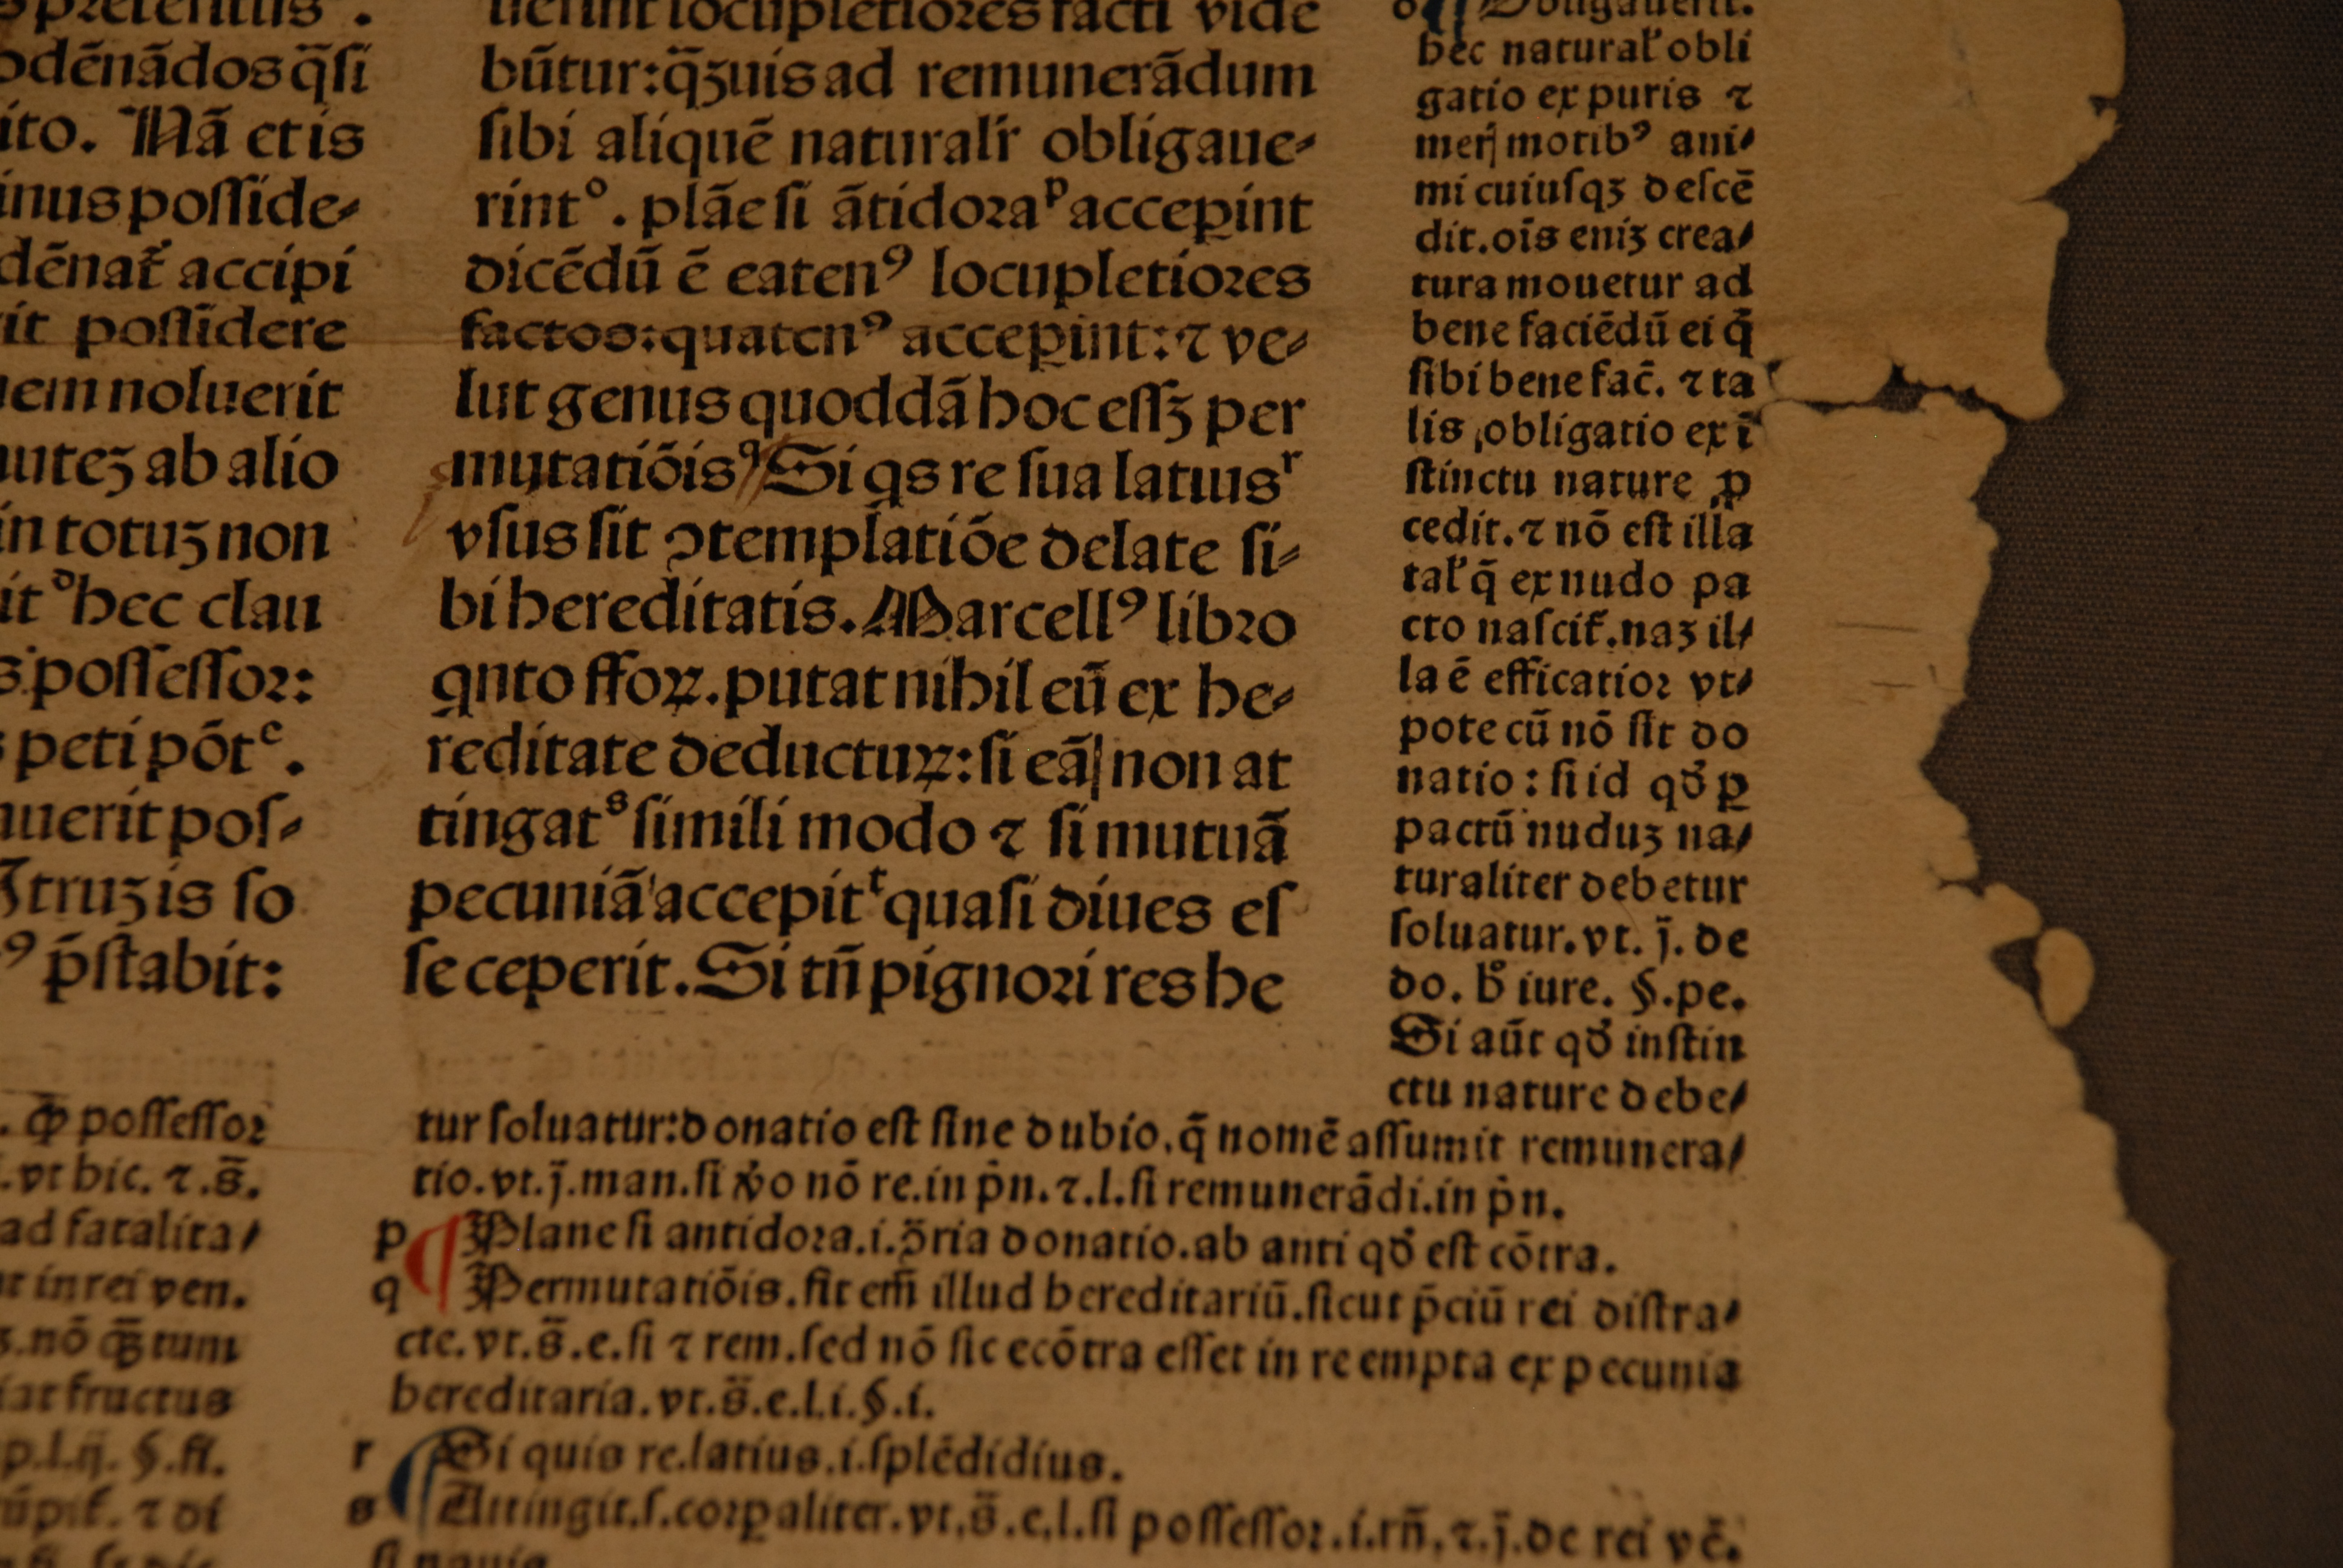 ito. Nā et is
inus posside⸗
dēnat᷑ accipi
it possidere
uem noluerit
utez ab alio
in totuꝫ non
it ᵇhec clau
possessoꝛ:
peti pōt ᶜ.
uerit pos⸗
Itruꝫ is so
ꝰ p̄stabit:
ꝙ possessoꝛ
.vt hic. ⁊ .s̄.
ad fatalita/
in rei ven.
.nō qꝫtum
at fructus
būtur:q̄ꝫuis ad remunerādum
sibi aliquē naturalr̄ obligaue⸗
rintᵒ. plāe si ātidoꝛaᵖ accep̱int
dicēdū ē eatenꝰ locupletioꝛes
factos:quatenꝰ accep̱int:⁊ ve⸗
lut genus quoddā hoc essꝫ per
mutatiōis ꝗ Si qs re sua latiusʳ
vsus sit ↄtemplatiōe delate si⸗
bi hereditatis. Marcellꝰ libꝛo
qnto ffoꝝ. putat nihil eū ex he⸗
reditate deductuꝝ: si eā non at
tingatˢ simili modo ⁊ si mutuā
pecuniā accepitᵗ quasi diues es
se ceperit. Si tn̄ pignoꝛi res he
o ¶ Obligauerit.
hec natural᷑ obli
gatio ex puris ⁊
merꝭ motibꝰ ani/
mi cuiusqꝫ descē
dit. oīs eniꝫ crea/
tura mouetur ad
bene faciēdū ei q̄
sibi bene fac̄. ⁊ ta
lis obligatio ex ī
stinctu nature ꝓ
cedit. ⁊ nō est illa
tal᷑ q̄ ex nudo pa
cto nascit᷑. naꝫ il/
la ē efficatioꝛ vt/
pote cū nō sit do
natio: si id qđ ꝑ
pactū nuduꝫ na/
turaliter debetur
soluatur. vt. j̄. de
do. ƀ iure. §. pe.
Si aūt qđ instin
ctu nature debe/
tur soluatur: donatio est sine dubio. q̄ nomē assumit remunera/
tio. vt. j̄. man. si ꝟo nō re. in pn̄. ⁊. l. si remunerādi. in pn̄.
p ¶ Plane si antidoꝛa. i. ꝯ̄ria donatio. ab anti qđ est cōtra.
q Permutatiōis. fit em̄ illud hereditariū. sicut p̄ciū rei distra/
cte. vt. s̄. e. si ⁊ rem. sed nō sic ecōtra esset in re empta ex pecunia
hereditaria. vt. s̄. e. l. i. §. i.
r ¶ Si quis re. latius. i. splēdidius.
s Attingit. s. coꝛꝑaliter. vt. s̄. e. l. si possessoꝛ. i. rn̄. ⁊. j̄. de rei vē.